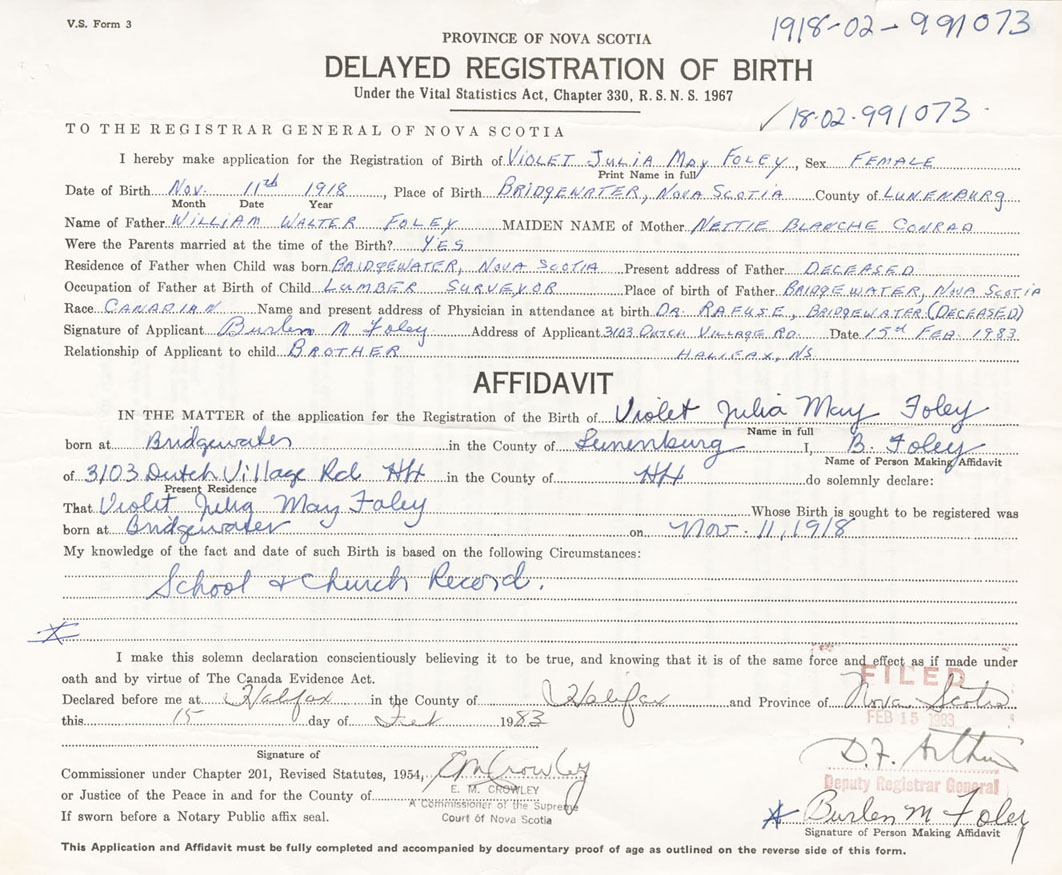 V.S. Form 3
1918-02-991073
PROVINCE OF NOVA SCOTIA
DELAYED REGISTRATION OF BIRTH
Under the Vital Statistics Act, Chapter 330, R.S.N.S. 1967
✓18-02-991073
TO THE REGISTRAR GENERAL OF NOVA SCOTIA
I hereby make application for the Registration of Birth of VIOLET JULIA MAY FOLEY, Sex FEMALE
Print Name in full
Date of Birth NOV. 11th 1918, Place of Birth BRIDGEWATER, NOVA SCOTIA County of LUNENBURG
Month Date Year
Name of Father WILLIAM WALTER FOLEY MAIDEN NAME of Mother NETTIE BLANCHE CONRAD
Were the Parents married at the time of the Birth? YES
Residence of Father when Child was born BRIDGEWATER, NOVA SCOTIA Present address of Father DECEASED
Occupation of Father at Birth of Child LUMBER SURVEYOR Place of birth of Father BRIDGEWATER, NOVA SCOTIA
Race CANADIAN Name and present address of Physician in attendance at birth DR. RAFUSE, BRIDGEWATER (DECEASED)
Signature of Applicant Burlen M Foley Address of Applicant 3103 DUTCH VILLAGE RD. Date 15th FEB. 1983
Relationship of Applicant to child BROTHER HALIFAX, NS
AFFIDAVIT
IN THE MATTER of the application for the Registration of the Birth of Violet Julia May Foley
Name in full
born at Bridgewater in the County of Lunenburg I, B. Foley
Name of Person Making Affidavit
of 3103 Dutch Village Rd Hfx in the County of Hfx do solemnly declare:
Present Residence
That Violet Julia May Foley Whose Birth is sought to be registered was
born at Bridgewater on Nov. 11, 1918
My knowledge of the fact and date of such Birth is based on the following Circumstances:
School & Church Record.
I make this solemn declaration conscientiously believing it to be true, and knowing that it is of the same force and effect as if made under
oath and by virtue of The Canada Evidence Act.
FILED
Declared before me at Halifax in the County of Halifax and Province of Nova Scotia
this 15 day of Feb 1983
FEB 15 1983
D.F. Arthur
Signature of
Commissioner under Chapter 201, Revised Statutes, 1954, EMCrowley
Deputy Registrar General
or Justice of the Peace in and for the County of E. M. CROWLEY
A Commissioner of the Supreme
If sworn before a Notary Public affix seal. Court of Nova Scotia
Burlen M Foley
Signature of Person Making Affidavit
This Application and Affidavit must be fully completed and accompanied by documentary proof of age as outlined on the reverse side of this form.